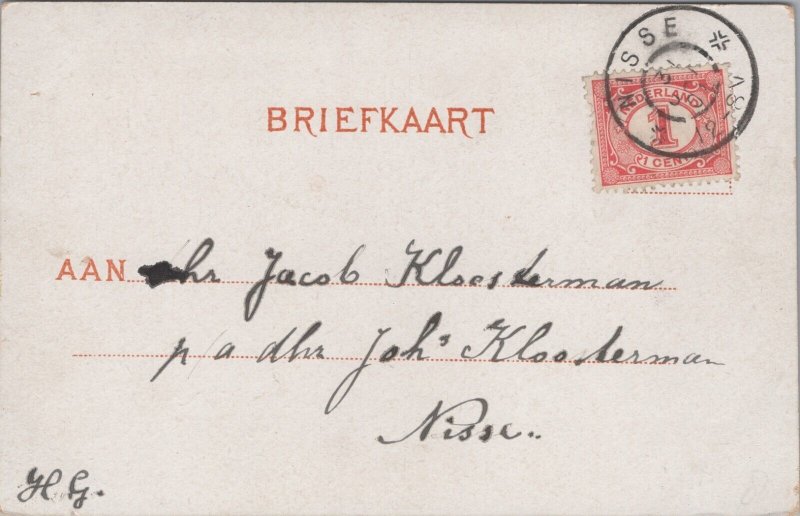 NISSE
NEDERLAND
1
1 CENT
BRIEFKAART
AAN dhr Jacob Kloosterman
p/a dhr Joh⁵ Kloosterman
Nisse.
H G.